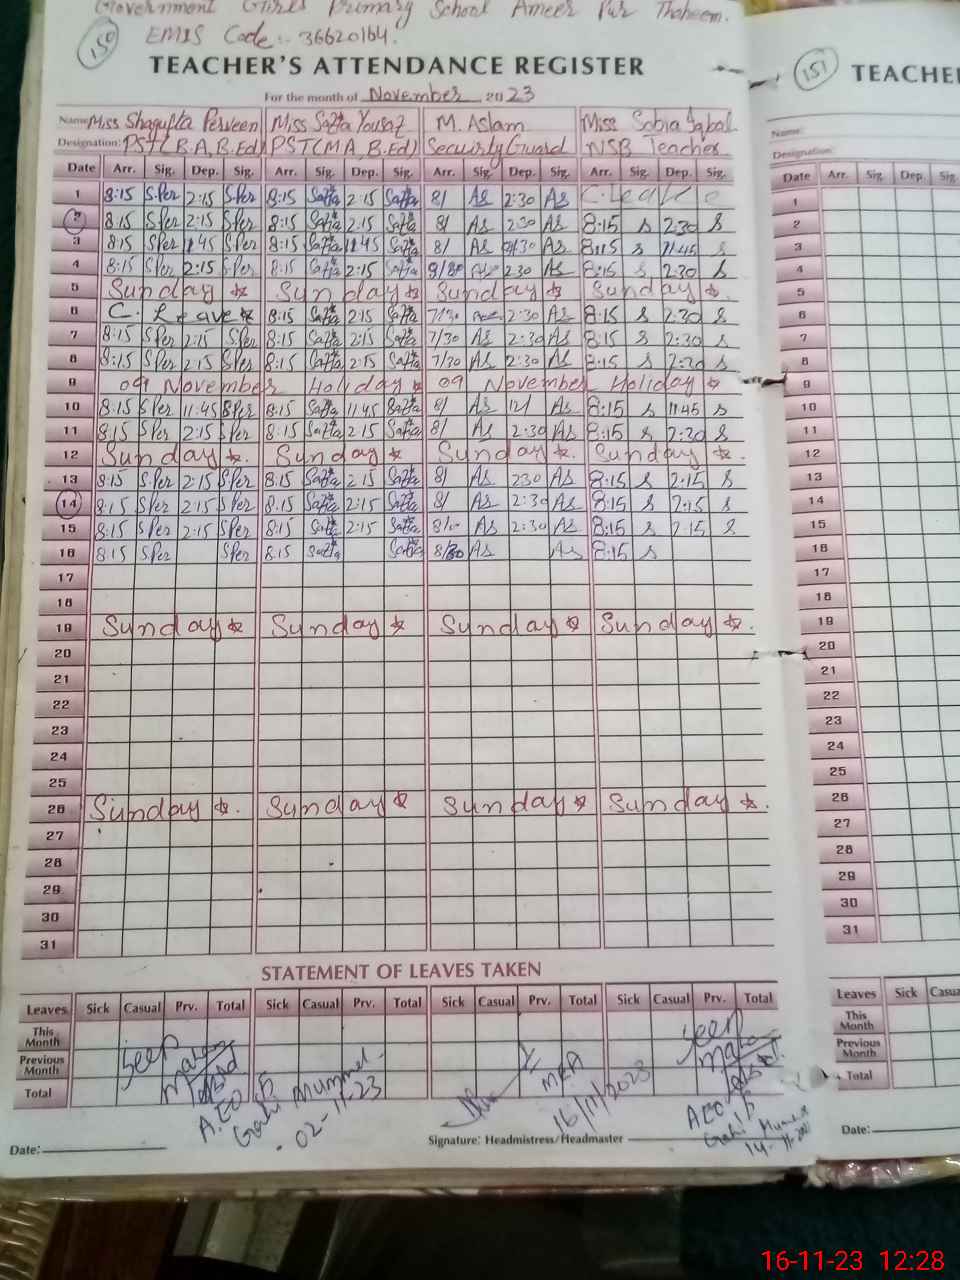 Government Girls Primary School Ameer Pur Thaheem.
150 EMIS Code:- 36620164.
TEACHER'S ATTENDANCE REGISTER
For the month of November 2023
Name: Miss Shagufta Perveen Miss Safia Yousaf M. Aslam Miss Sobia Iqbal
Designation: PST(B.A, B.Ed) PST(MA, B.Ed) Security Guard NSB Teacher
Date Arr. Sig. Dep. Sig. Arr. Sig. Dep. Sig. Arr. Sig. Dep. Sig. Arr. Sig. Dep. Sig.
1 8:15 S.Per 2:15 S.Per 8:15 Safia 2:15 Safia 8/ As 2:30 As C.Leave
2 8:15 S.Per 2:15 S.Per 8:15 Safia 2:15 Safia 8/ As 2:30 As 8:15 s 2:30 s
3 8:15 S.Per 11:45 S.Per 8:15 Safia 11:45 Safia 8/ As As 8:15 s 11:45 s
4 8:15 S.Per 2:15 S.Per 8:15 Safia 2:15 Safia As 2:30 As 8:15 s 2:30 s
5 Sunday Sunday Sunday Sunday
6 C. Leave 8:15 Safia 2:15 Safia 7/30 As 2:30 As 8:15 s 2:30 s
7 8:15 S.Per 2:15 S.Per 8:15 Safia 2:15 Safia 7/30 As 2:30 As 8:15 s 2:30 s
8 8:15 S.Per 2:15 S.Per 8:15 Safia 2:15 Safia 7/30 As 2:30 As 8:15 s 2:30 s
9 09 November Holiday 09 November Holiday
10 8:15 S.Per 11:45 S.Per 8:15 Safia 11:45 Safia 8/ As 12/ As 8:15 s 11:45 s
11 8:15 S.Per 2:15 S.Per 8:15 Safia 2:15 Safia 8/ As 2:30 As 8:15 s 2:30 s
12 Sunday Sunday Sunday Sunday
13 8:15 S.Per 2:15 S.Per 8:15 Safia 2:15 Safia 8/ As 2:30 As 8:15 s 2:15 s
14 8:15 S.Per 2:15 S.Per 8:15 Safia 2:15 Safia 8/ As 2:30 As 8:15 s 2:15 s
15 8:15 S.Per 2:15 S.Per 8:15 Safia 2:15 Safia As 2:30 As 8:15 s 2:15 s
16 8:15 S.Per S.Per 8:15 Safia Safia 8/30 As As 8:15 s
17
18
19 Sunday Sunday Sunday Sunday
20
21
22
23
24
25
26 Sunday Sunday Sunday Sunday
27
28
29
30
31
STATEMENT OF LEAVES TAKEN
Leaves Sick Casual Prv. Total Sick Casual Prv. Total Sick Casual Prv. Total Sick Casual Prv. Total
This Month
Previous Month
Total
Seen
A.EO
02-11-23
MEA
16/11/2023
Seen
AEO
Date:
Signature: Headmistress/Headmaster
151 TEACHE
Name:
Designation:
Date Arr. Sig. Dep. Sig.
1
2
3
4
5
6
7
8
9
10
11
12
13
14
15
16
17
18
19
20
21
22
23
24
25
26
27
28
29
30
31
Leaves Sick Casua
This Month
Previous Month
Total
Date:
16-11-23 12:28